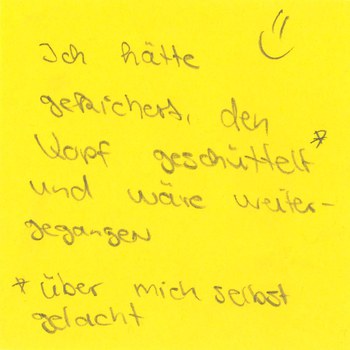 Ich hätte
gekichert, den
Kopf geschüttelt *
und wäre weiter-
gegangen
* über mich selbst
gelacht